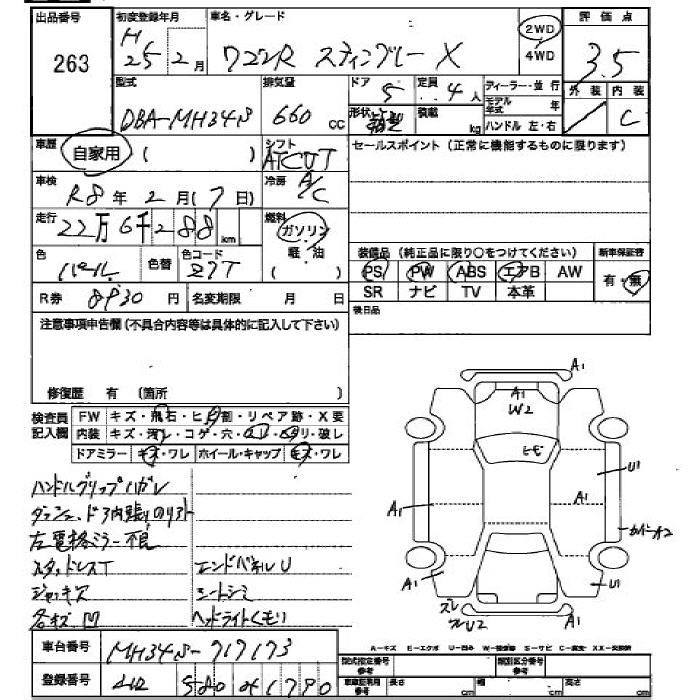 出品番号 263
初度登録年月 H 25 2月
車名・グレード ワゴンR スティングレー X
2WD
4WD
評価点 3.5
外装 内装 C
型式 DBA-MH34S
排気量 660 cc
ドア 5
定員 4人
形状 箱型
積載 kg
ディーラー・並行
モデル年式 年
ハンドル 左・右
車歴 自家用 ( )
シフト AT CVT
セールスポイント (正常に機能するものに限ります)
車検 R8年 2月 (7日)
冷房 A/C
走行 22万6千288 km
燃料 ガソリン
軽油
色 パール 色替 色コード Z7T
装備品 (純正品に限り○をつけてください) 新車保証書
PS PW ABS エアB AW 有・無
SR ナビ TV 本革
R券 8930円 名変期限 月 日
後日品
注意事項申告欄 (不具合内容等は具体的に記入して下さい)
修復歴 有 (箇所 )
検査員記入欄
FW キズ・飛石・ヒビ割・リペア跡・X要
内装 キズ・汚レ・コゲ・穴・スレ・ヘタリ・破レ
ドアミラー キズ・ワレ ホイール・キャップ キズ・ワレ
ハンドルグリップハガレ
ダッシュ、ドア内張りのリフト
左電格ミラー不良
スタッドレスT エンドパネルU
ジャッキキズ シートシミ
各キズ凹 ヘッドライトくもり
A1
A1
W2
ヒビ
A1 A1 U1
カバーA2
A1 U1
スレ
A1
車台番号 MH34S-717173
登録番号 580 1790
A-キズ E-エクボ U-凹み W-補修跡 S-サビ C-腐食 XX-交換済
型式指定番号 類別区分番号
車庫証明用参考 長さ cm 幅 cm 高さ cm